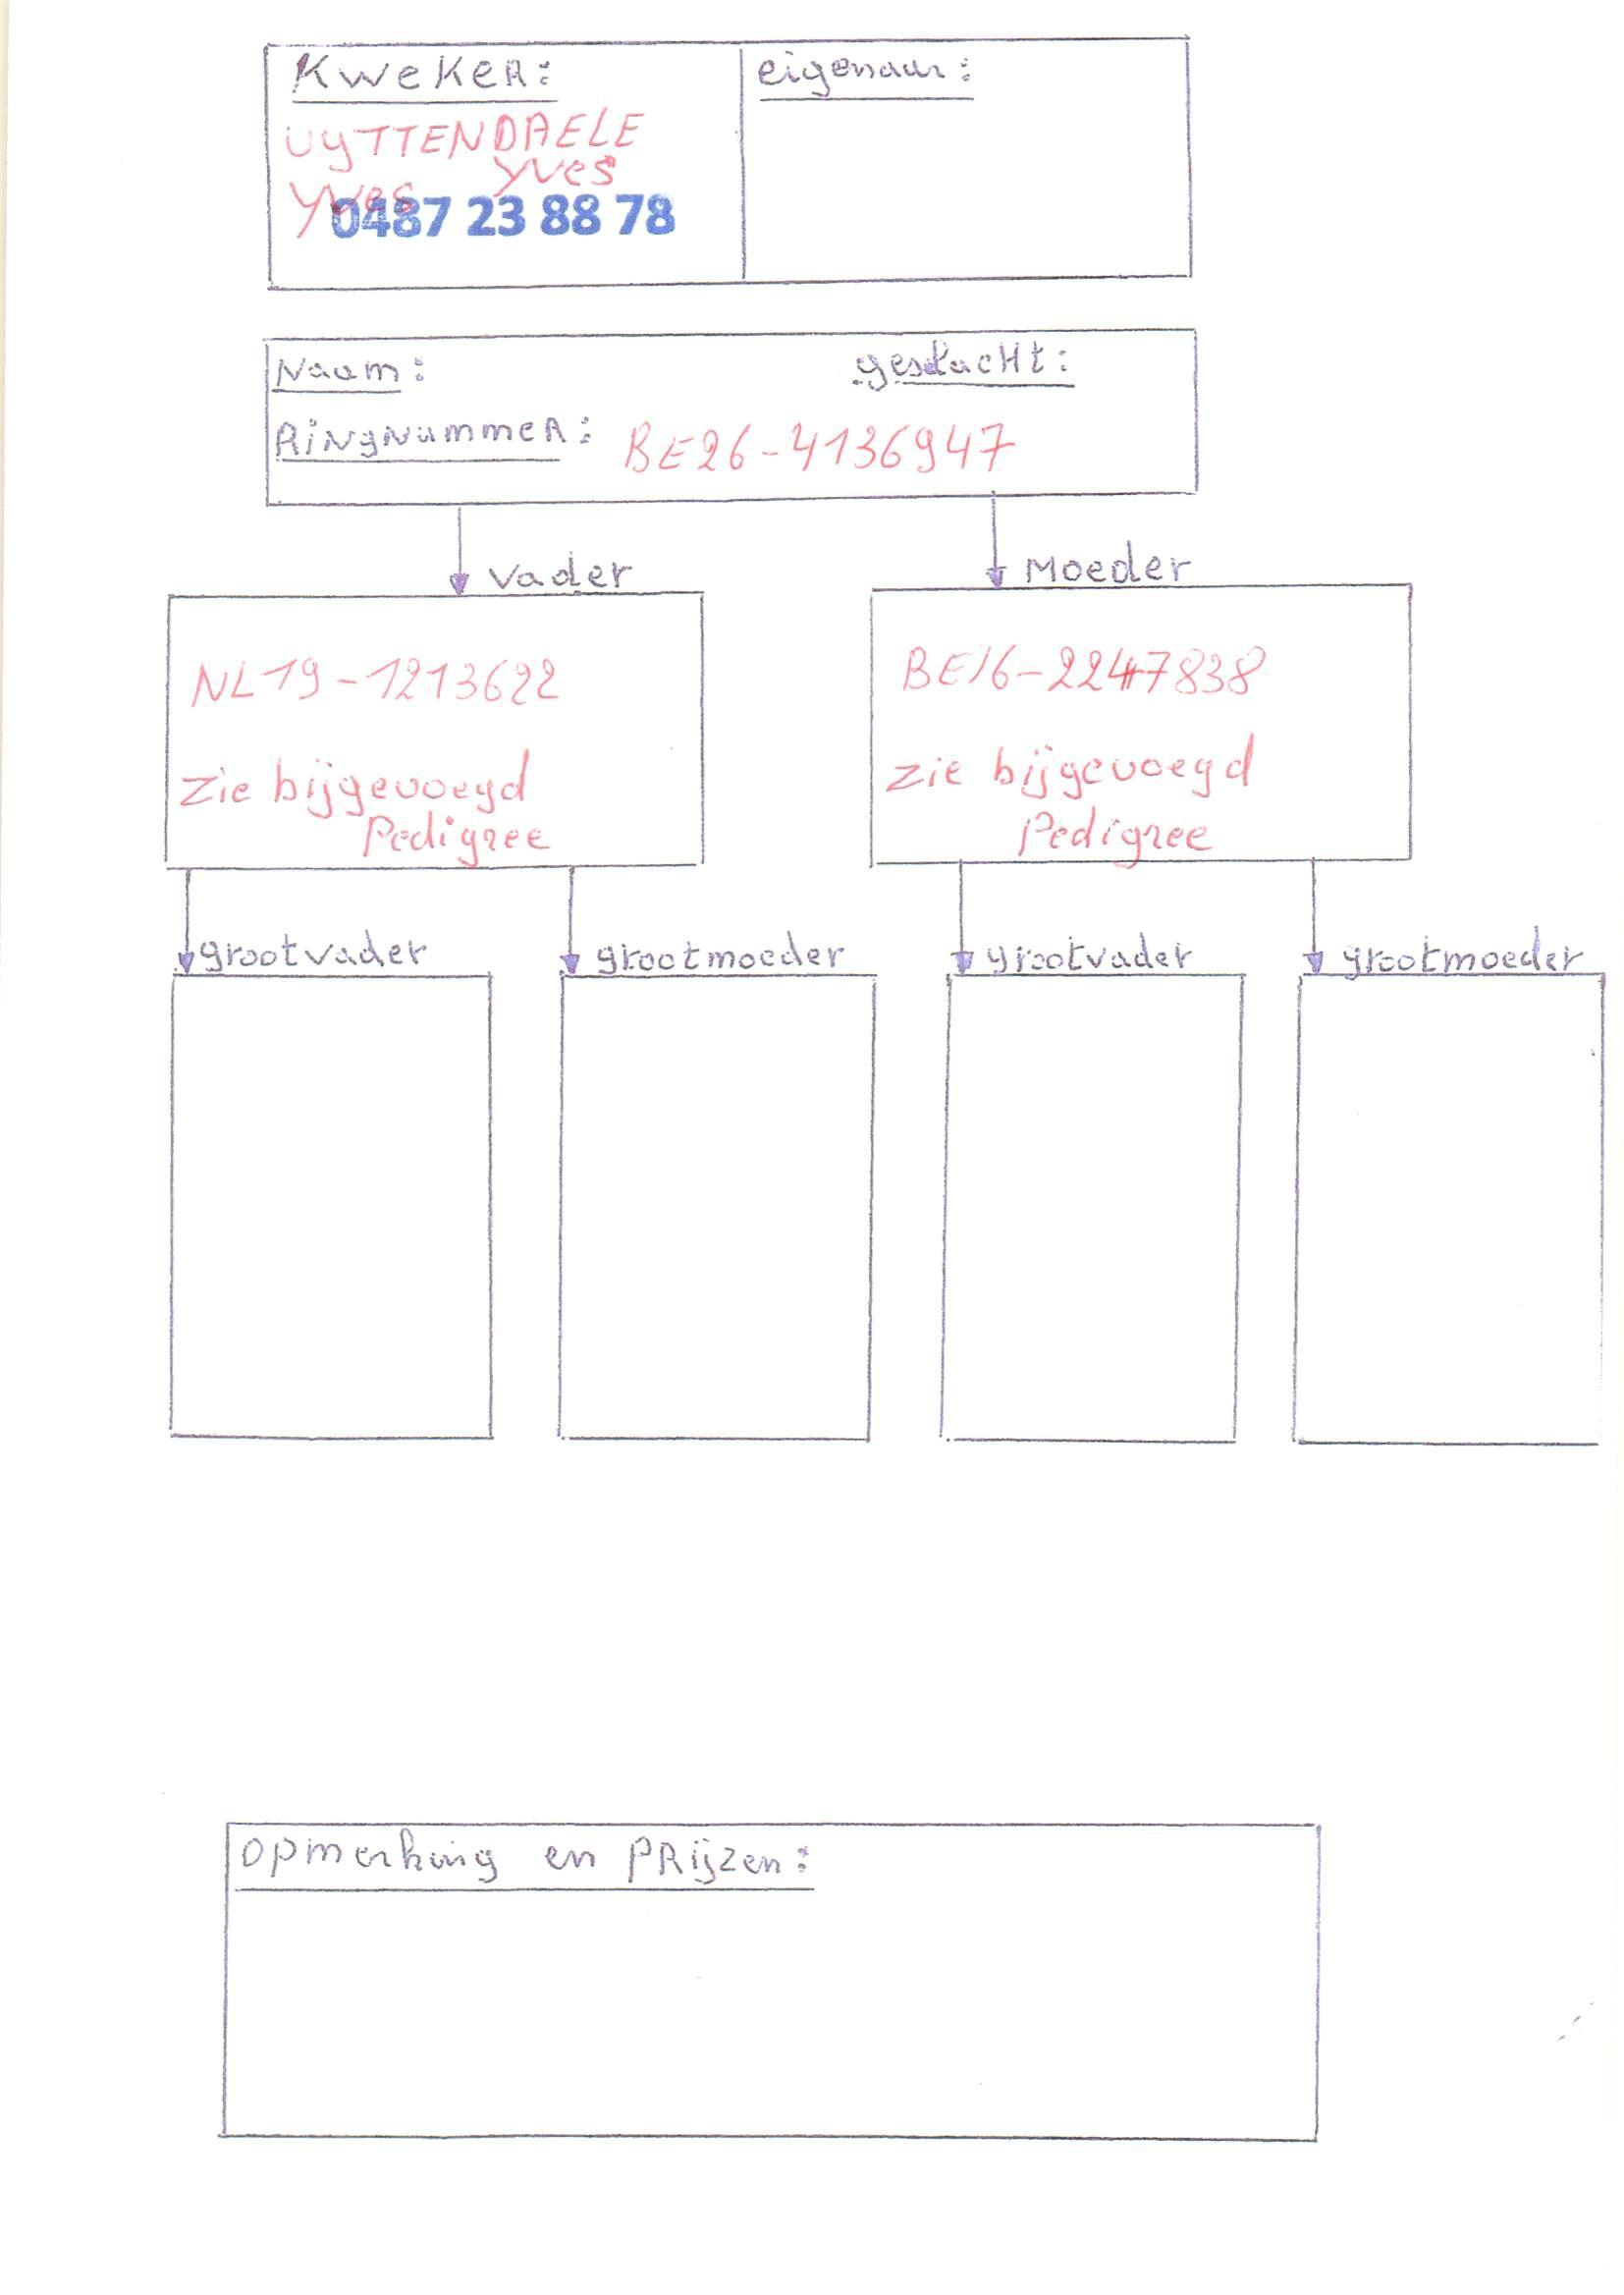 Kweker:
eigenaar:
UYTTENDAELE
Yves
Yves
0487 23 88 78
Naam:
geslacht:
Ringnummer:
BE26-4136947
Vader
Moeder
NL19-1213622
BE16-2247838
Zie bijgevoegd
Pedigree
Zie bijgevoegd
Pedigree
grootvader
grootmoeder
grootvader
grootmoeder
opmerking en PRijzen: